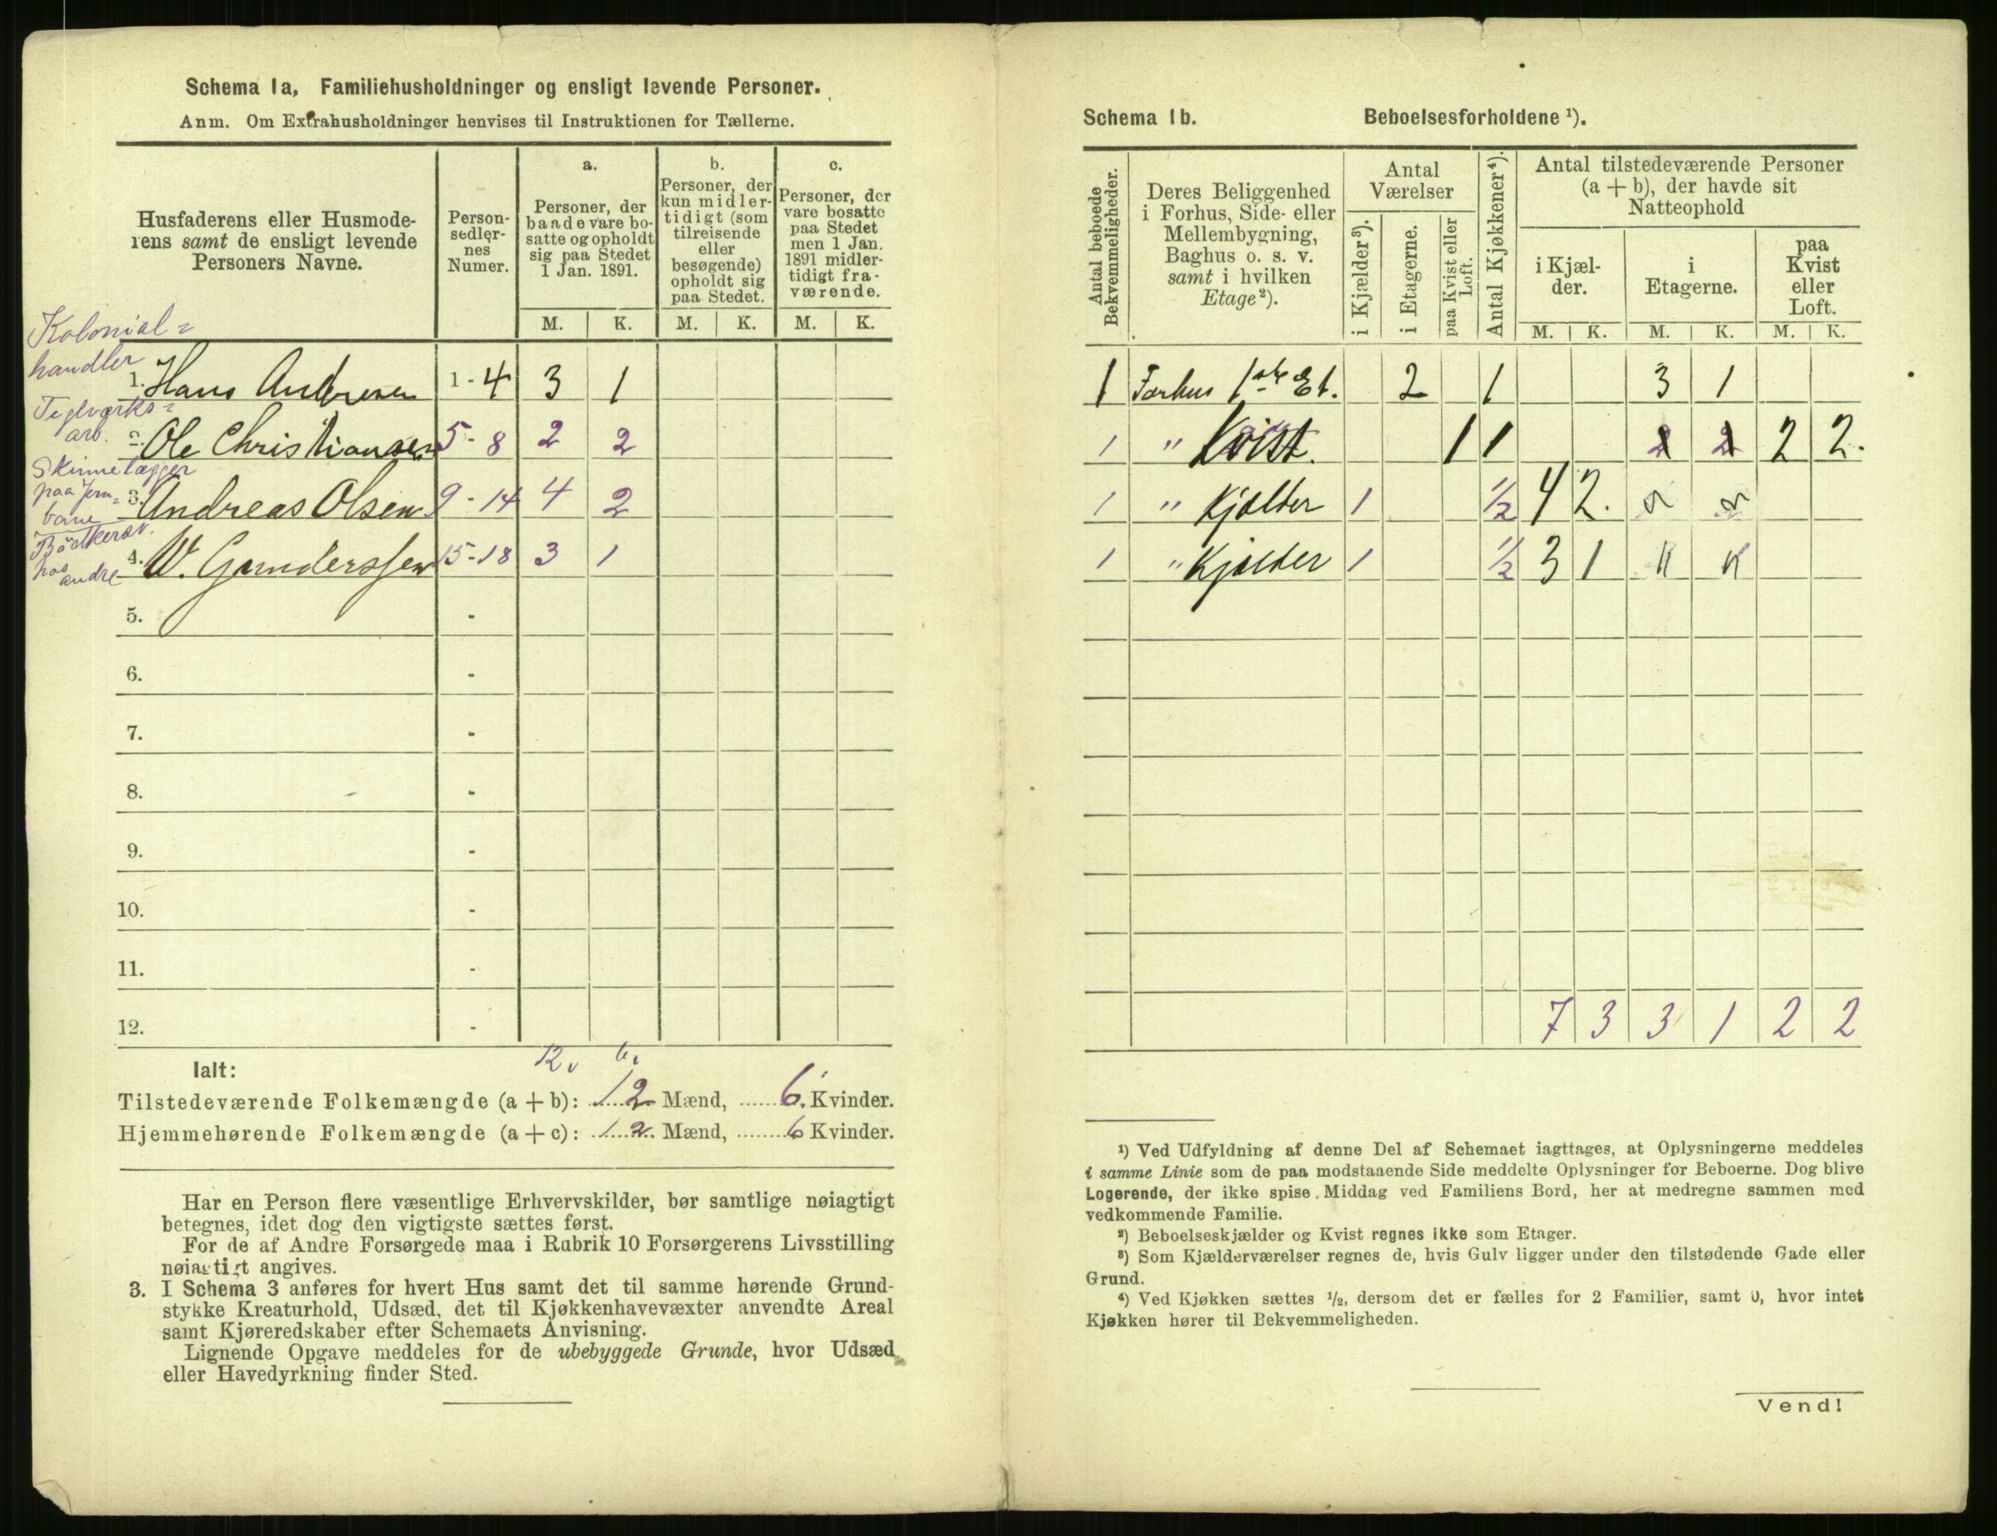 Schema 1a, Familiehusholdninger og ensligt levende Personer.
Anm. Om Extrahusholdninger henvises til Instruktionen for Tællerne.
Husfaderens eller Husmode-
rens samt de ensligt levende
Personers Navne.
Person-
sedler-
nes
Numer.
a.
Personer, der
baade vare bo-
satte og opholdt
sig paa Stedet
1 Jan. 1891.
b.
Personer, der
kun midler-
tidigt (som
tilreisende
eller
besøgende)
opholdt sig
paa Stedet.
c.
Personer, der
vare bosatte
paa Stedet
men 1 Jan.
1891 midler-
tidigt fra-
værende.
M. K. M. K. M. K.
Kolonial=
handler
1. Hans Andresen 1 - 4 3 1
Teglværks=
arb.
2. Ole Christiansen 5 - 8 2 2
Skinnelægger
paa Jern=
bane
3. Andreas Olsen 9 - 14 4 2
Bödkersv.
hos
andre
4. W. Gunderssen 15 - 18 3 1
5. -
6. -
7. -
8. -
9. -
10. -
11. -
12. -
12. 6.
Ialt:
Tilstedeværende Folkemængde (a + b): 12 Mænd, 6. Kvinder.
Hjemmehørende Folkemængde (a + c): 12 Mænd, 6 Kvinder.
Har en Person flere væsentlige Erhvervskilder, bør samtlige nøiagtigt
betegnes, idet dog den vigtigste sættes først.
For de af Andre Forsørgede maa i Rubrik 10 Forsørgerens Livsstilling
nøiagtigt angives.
3. I Schema 3 anføres for hvert Hus samt det til samme hørende Grund-
stykke Kreaturhold, Udsæd, det til Kjøkkenhavevæxter anvendte Areal
samt Kjøreredskaber efter Schemaets Anvisning.
Lignende Opgave meddeles for de ubebyggede Grunde, hvor Udsæd
eller Havedyrkning finder Sted.
Schema 1b. Beboelsesforholdene ¹).
Antal beboede
Bekvemmeligheder.
Deres Beliggenhed
i Forhus, Side- eller
Mellembygning,
Baghus o. s. v.
samt i hvilken
Etage²).
Antal
Værelser
i Kjælder³).
i Etagerne.
paa Kvist eller
Loft.
Antal Kjøkkener⁴).
Antal tilstedeværende Personer
(a + b), der havde sit
Natteophold
i Kjæl-
der.
i
Etagerne.
paa
Kvist
eller
Loft.
M. K. M. K. M. K.
1 Forhus 1ste Et. 2 1 3 1
1 " Kvist. 1 1 2 2 2 2.
1 " Kjælder 1 ½ 4 2.
1 " Kjælder 1 ½ 3 1
7 3 3 1 2 2
¹) Ved Udfyldning af denne Del af Schemaet iagttages, at Oplysningerne meddeles
i samme Linie som de paa modstaaende Side meddelte Oplysninger for Beboerne. Dog blive
Logerende, der ikke spise Middag ved Familiens Bord, her at medregne sammen med
vedkommende Familie.
²) Beboelseskjælder og Kvist regnes ikke som Etager.
³) Som Kjælderværelser regnes de, hvis Gulv ligger under den tilstødende Gade eller
Grund.
⁴) Ved Kjøkken sættes ½, dersom det er fælles for 2 Familier, samt 0, hvor intet
Kjøkken hører til Bekvemmeligheden.
Vend!